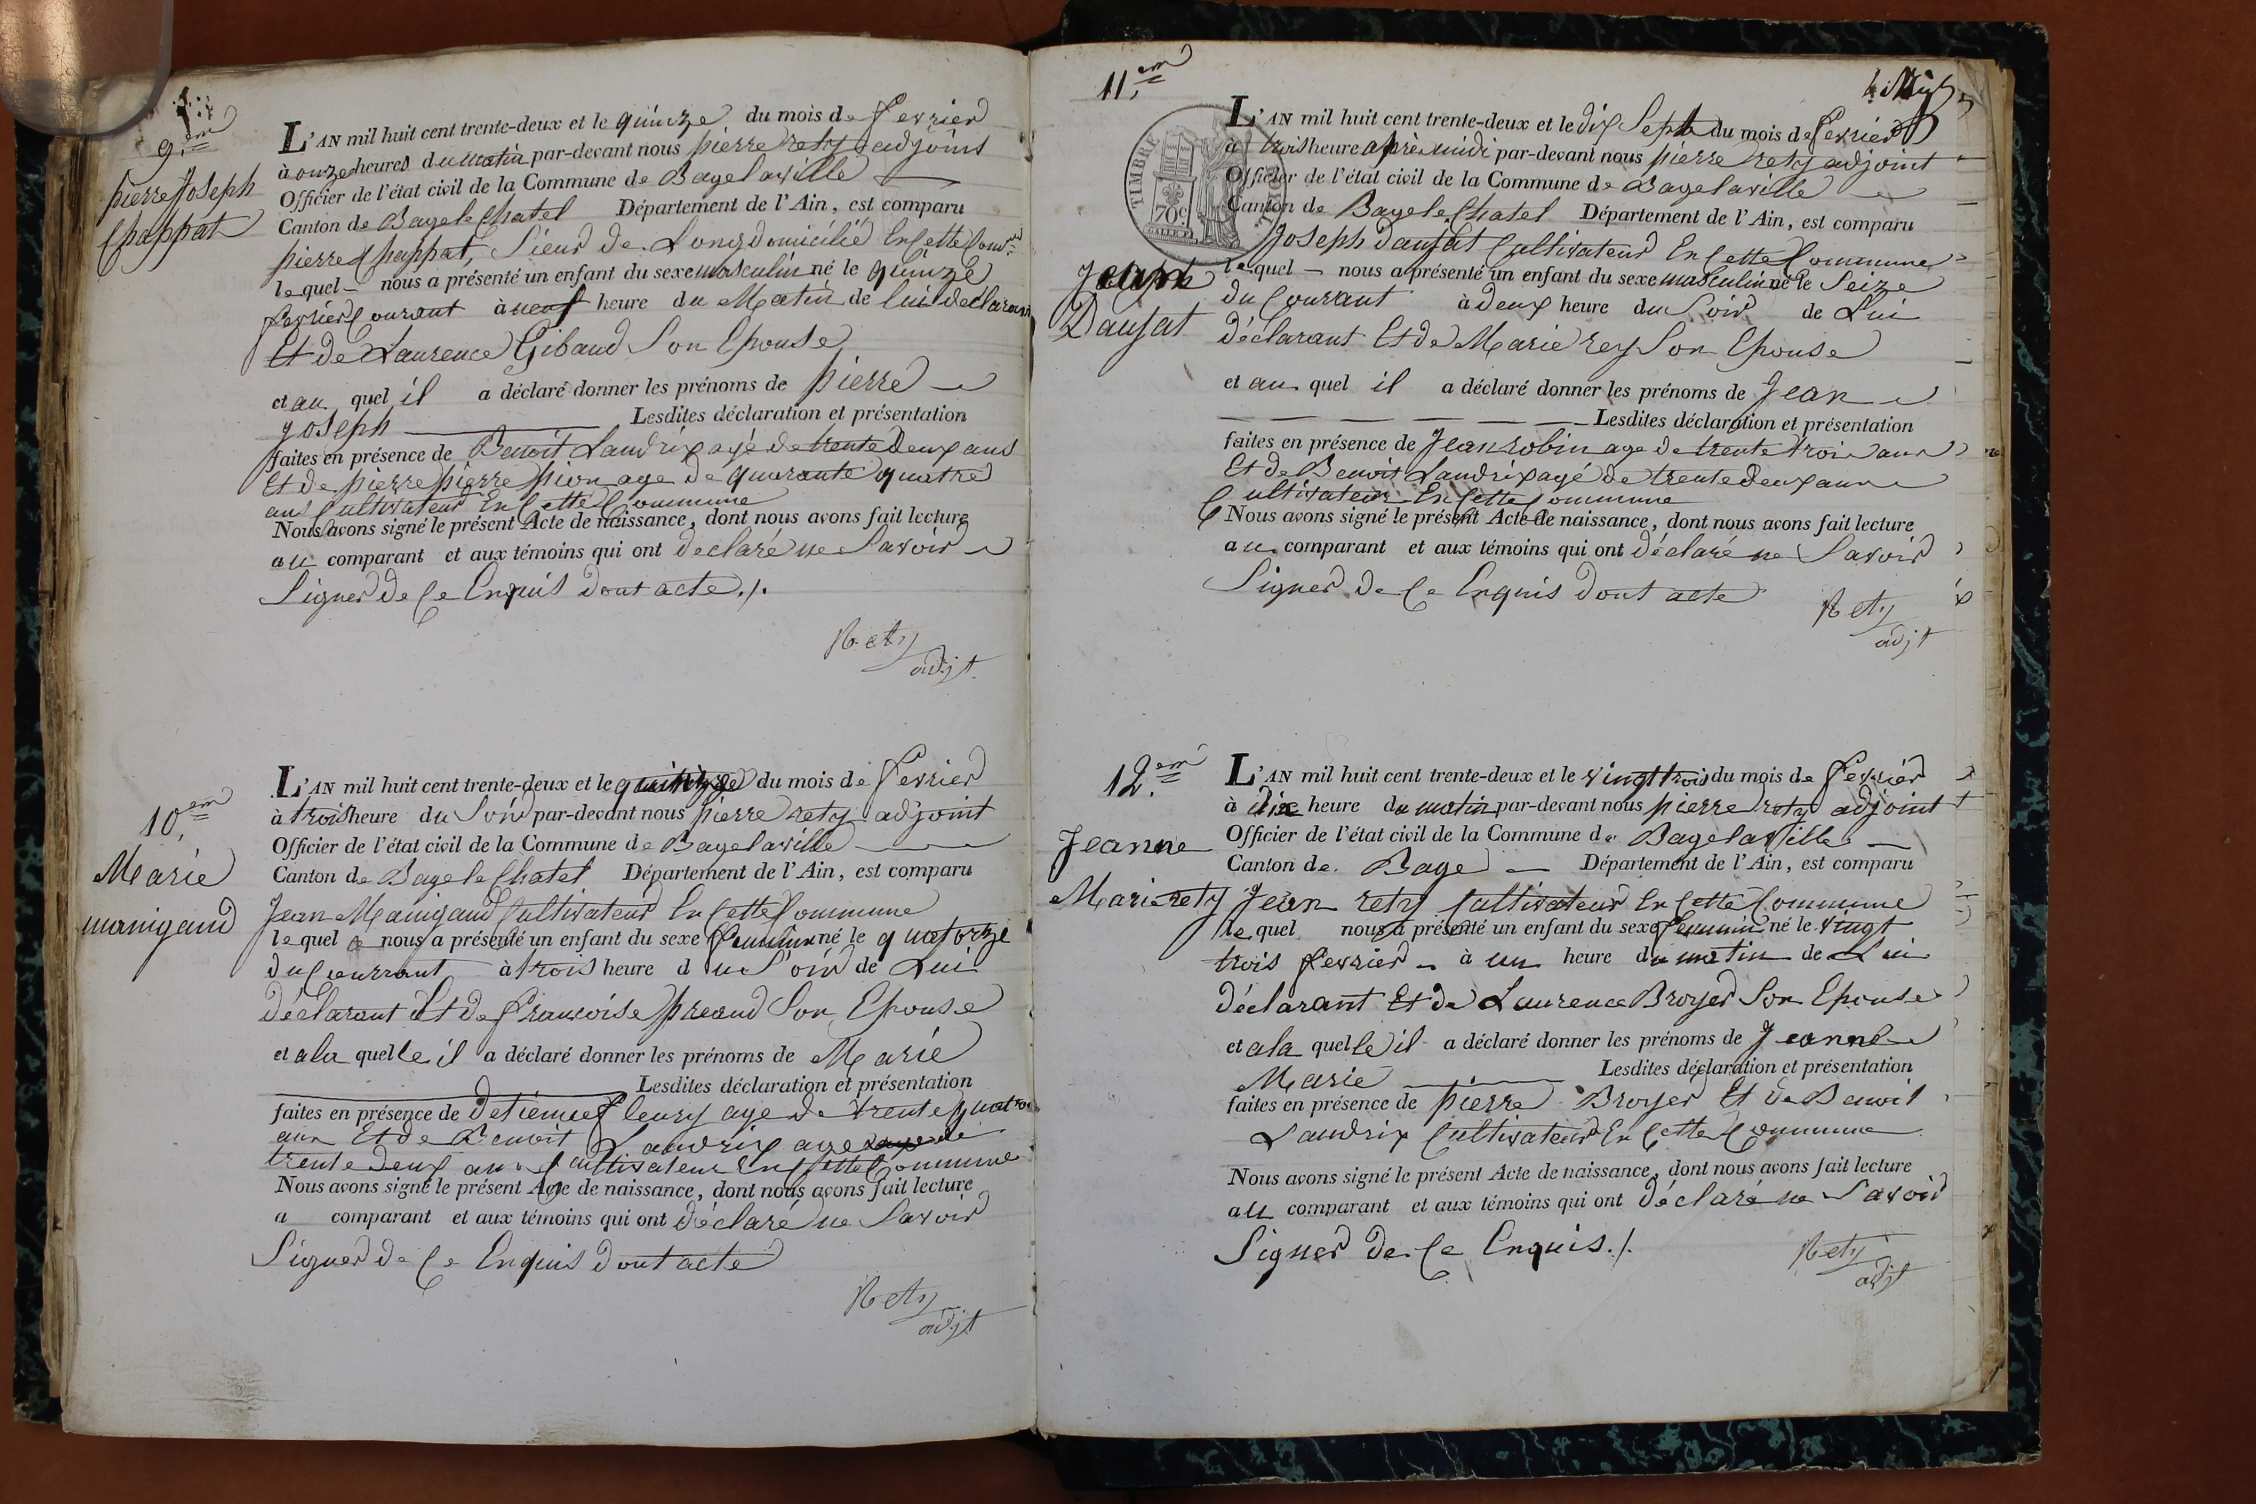 9.em
pierre Joseph
Chappat
L'AN mil huit cent trente-deux et le quinze du mois de fevrier
à onze heures du matin par-devant nous pierre rety adjoint
Officier de l'état civil de la Commune de Bagelaville
Canton de Bage le Chatel Département de l'Ain, est comparu
pierre Chappat, Sieur de Long domicilié En cette
le quel nous a présenté un enfant du sexe masculin né le quinze
fevrier Courant à neuf heure du Matin de lui déclarant
Et de Laurence Gibaud Son Epouse
et au quel il a déclaré donner les prénoms de pierre
joseph Lesdites déclaration et présentation
faites en présence de Benoit Landrix agé de trente Deux ans
Et de pierre pierre pion age de quarante quatre
ans Cultivateur En Cette Commune
Nous avons signé le présent Acte de naissance, dont nous avons fait lecture
au comparant et aux témoins qui ont declaré ne Savoir
Signer de Ce Enquis dont acte ./.
Rety
adjt
10.em
Marie
manigand
L'AN mil huit cent trente-deux et le quinze du mois de fevrier
à trois heure du Soir par-devant nous pierre rety adjoint
Officier de l'état civil de la Commune de Bagelaville
Canton de Bage le Chatel Département de l'Ain, est comparu
Jean Manigand Cultivateur En Cette Commune
le quel a nous a présenté un enfant du sexe feminin né le quatorze
du Courrant à trois heure du Soir de Lui
déclarant Et de francoise preaud Son Epouse
et a la quelle il a déclaré donner les prénoms de Marie
Lesdites déclaration et présentation
faites en présence de detienne fleury age de trente quatre
ans Et de Benoit Landrix age
trente Deux ans Cultivateur En Cette Commune
Nous avons signé le présent Acte de naissance, dont nous avons fait lecture
a comparant et aux témoins qui ont déclaré ne Savoir
Signer de Ce Enquis dont acte
Rety
adjt
11.em
TIMBRE
70c
Daujat
L'AN mil huit cent trente-deux et le dix Sept du mois de fevrier
à trois heure après midi par-devant nous pierre rety adjoint
Officier de l'état civil de la Commune de Bagelaville
Canton de Bage le Chatel Département de l'Ain, est comparu
Joseph daujat Cultivateur En Cette Commune
le quel nous a présenté un enfant du sexe masculin né le Seize
du Courant à deux heure du Soir de Lui
déclarant Et de Marie rey Son Epouse
et au quel il a déclaré donner les prénoms de Jean
Lesdites déclaration et présentation
faites en présence de Jean robin age de trente trois ans
Et de Benoit Landrix agé de trente deux ans
Cultivateur En Cette Commune
Nous avons signé le présent Acte de naissance, dont nous avons fait lecture
au comparant et aux témoins qui ont déclaré ne Savoir
Signer de Ce Enquis dont acte
Rety
adjt
12.em
Jeanne
Marie rety
L'AN mil huit cent trente-deux et le vingt trois du mois de fevrier
à dix heure du matin par-devant nous pierre rety adjoint
Officier de l'état civil de la Commune de Bagelaville
Canton de Bage Département de l'Ain, est comparu
Jean rety Cultivateur En Cette Commune
le quel nous a présenté un enfant du sexe feminin né le vingt
trois fevrier à un heure du matin de Lui
déclarant Et de Laurence Broyer Son Epouse
et a la quelle il a déclaré donner les prénoms de Jeanne
Marie Lesdites déclaration et présentation
faites en présence de pierre Broyer Et de Benoit
Landrix Cultivateur En Cette Commune
Nous avons signé le présent Acte de naissance, dont nous avons fait lecture
au comparant et aux témoins qui ont déclaré ne Savoir
Signer de Ce Enquis ./.
Rety
adjt